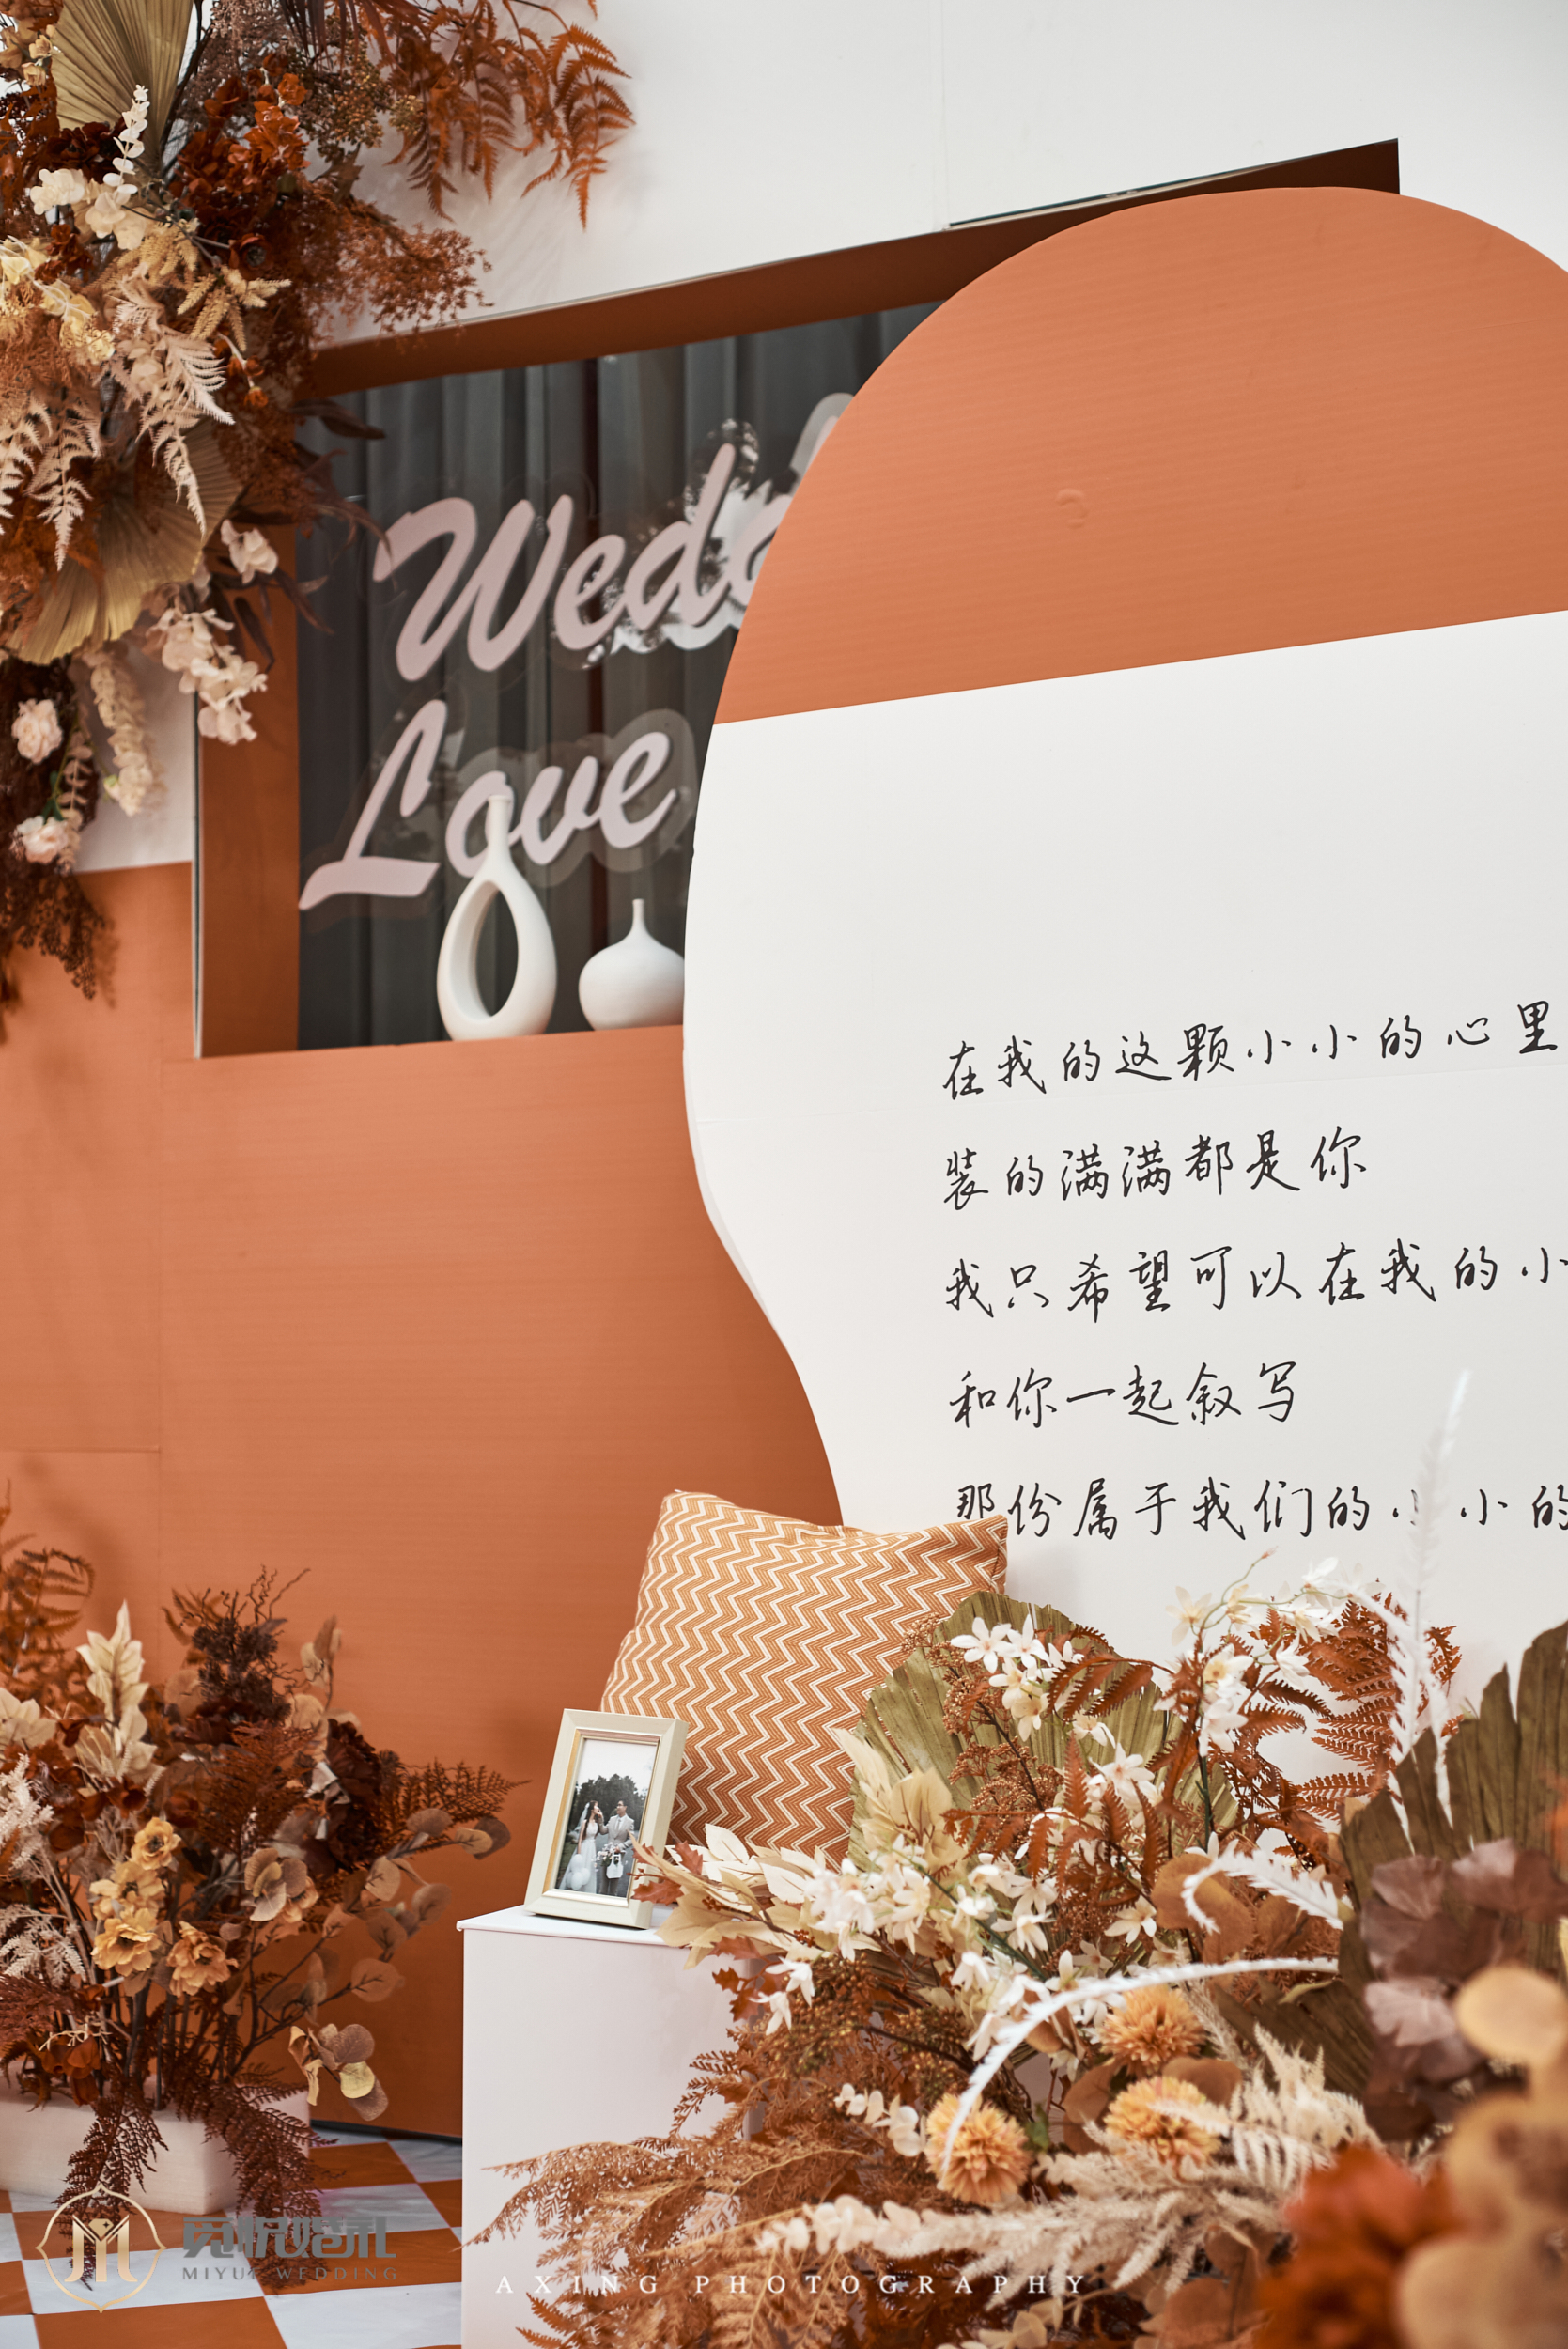 Wedd
Love
在我的这颗小小的心里
装的满满都是你
我只希望可以在我的小
和你一起叙写
那份属于我们的小小的
觅悦婚礼
MIYUE WEDDING
AXING PHOTOGRAPHY